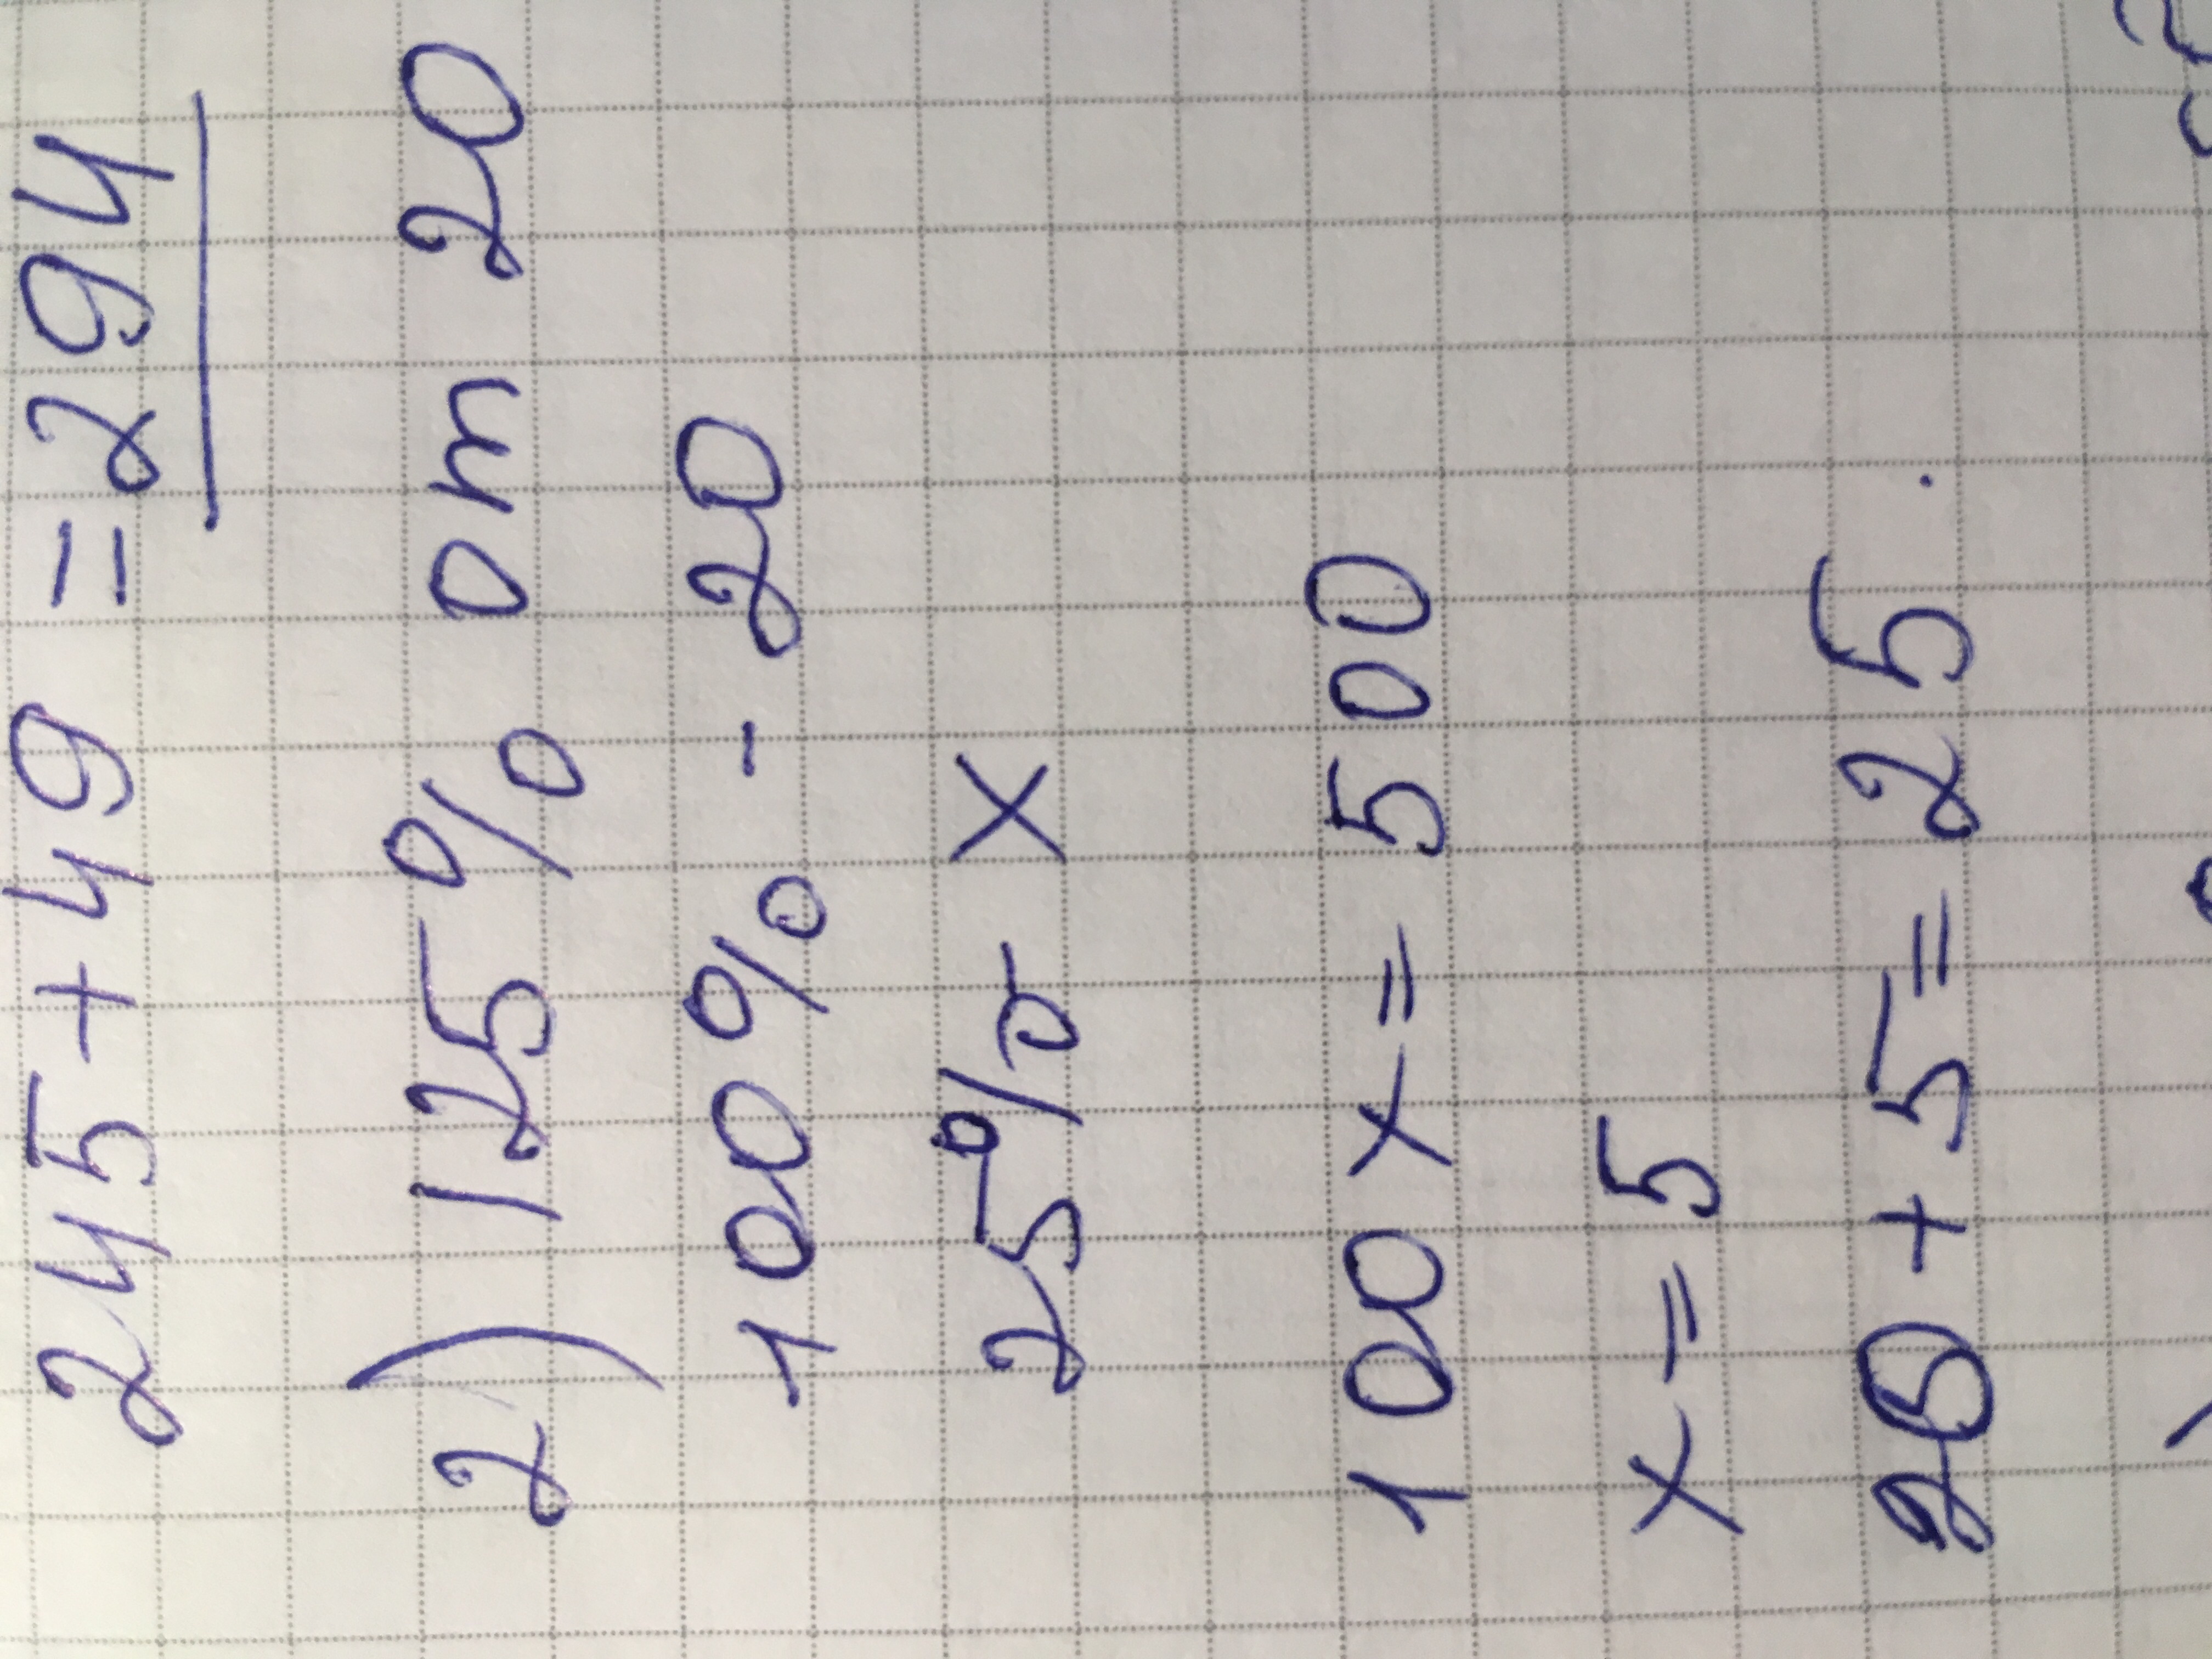 245 + 49 = 294
2) 125 % от 20
100 % - 20
25 % x
100 x = 500
x = 5
20 + 5 = 25.